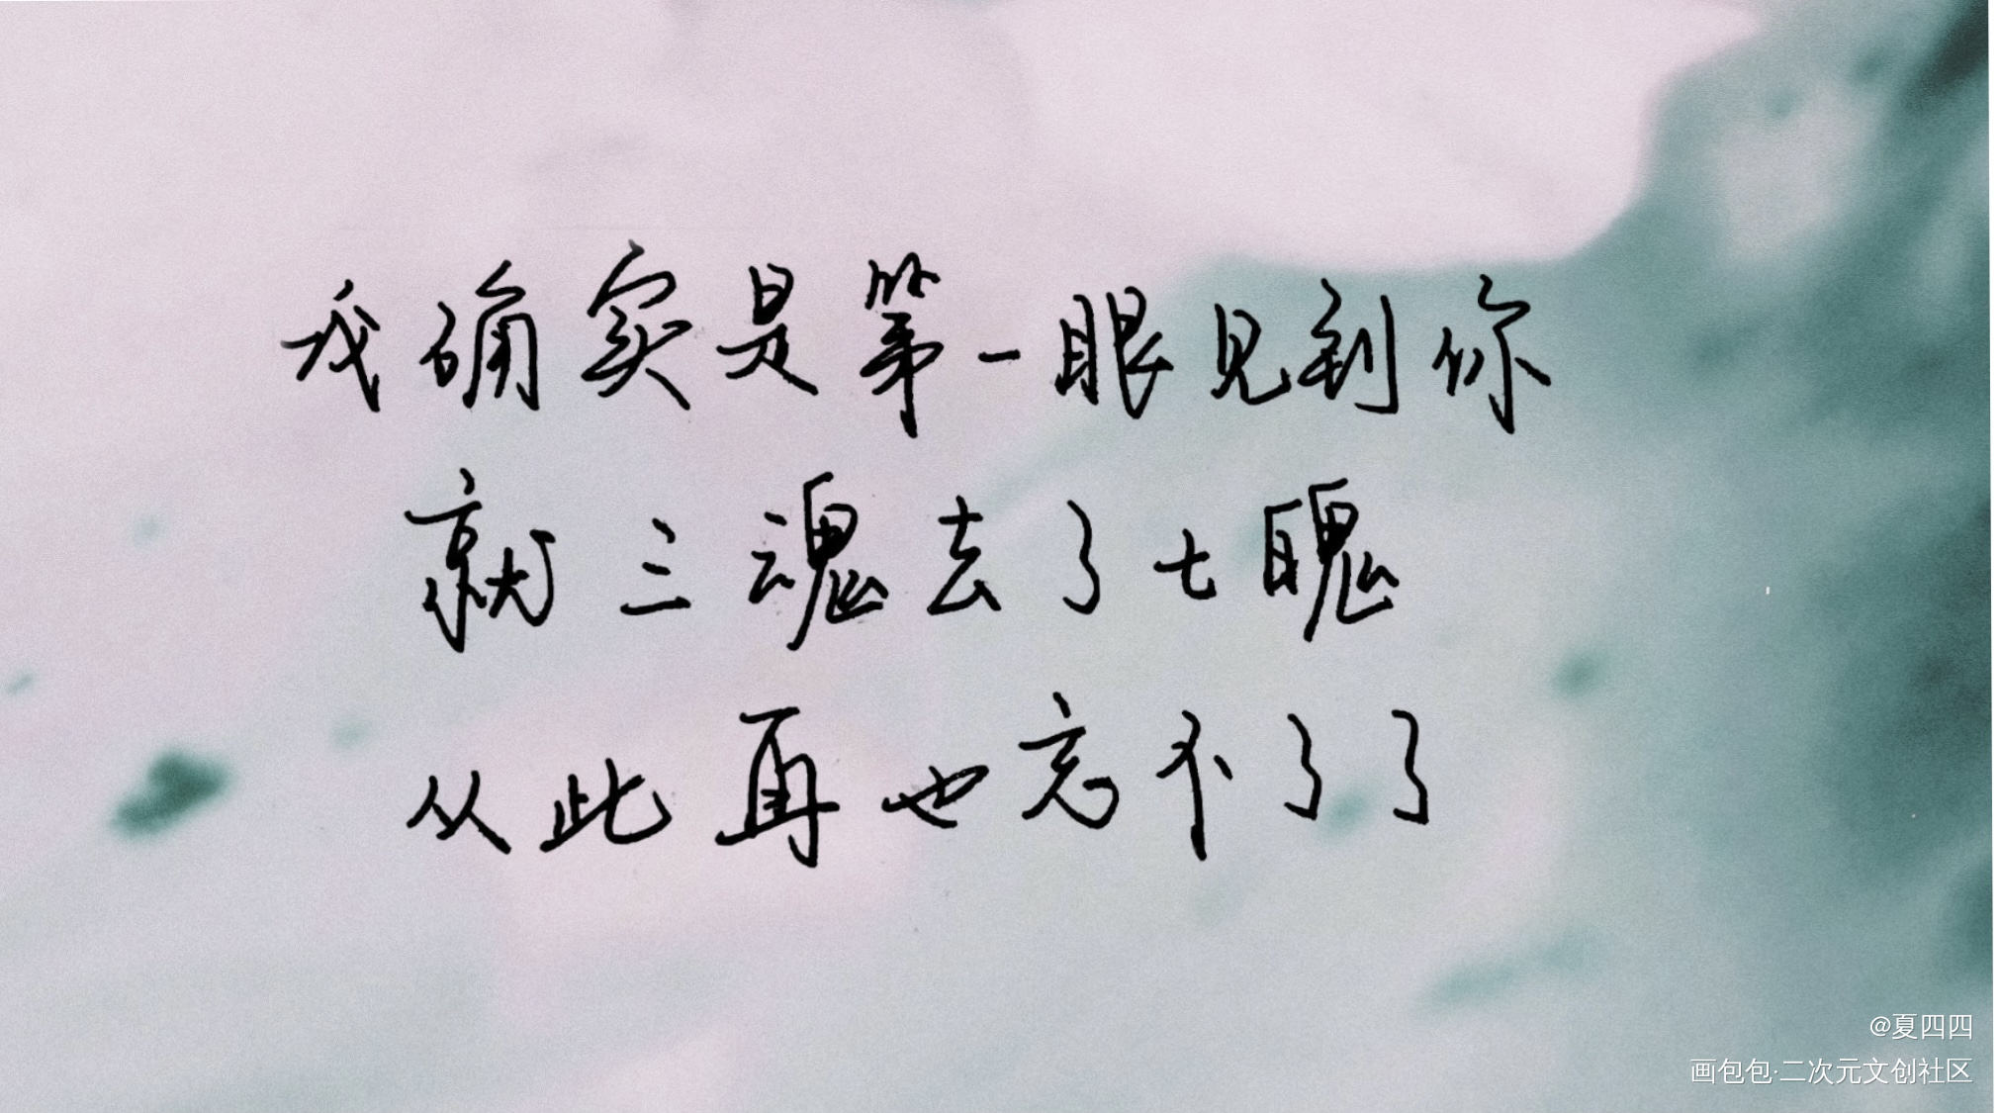 我确实是第一眼见到你
就三魂去了七魄
从此再也忘不了了
@夏四四
画包包·二次元文创社区